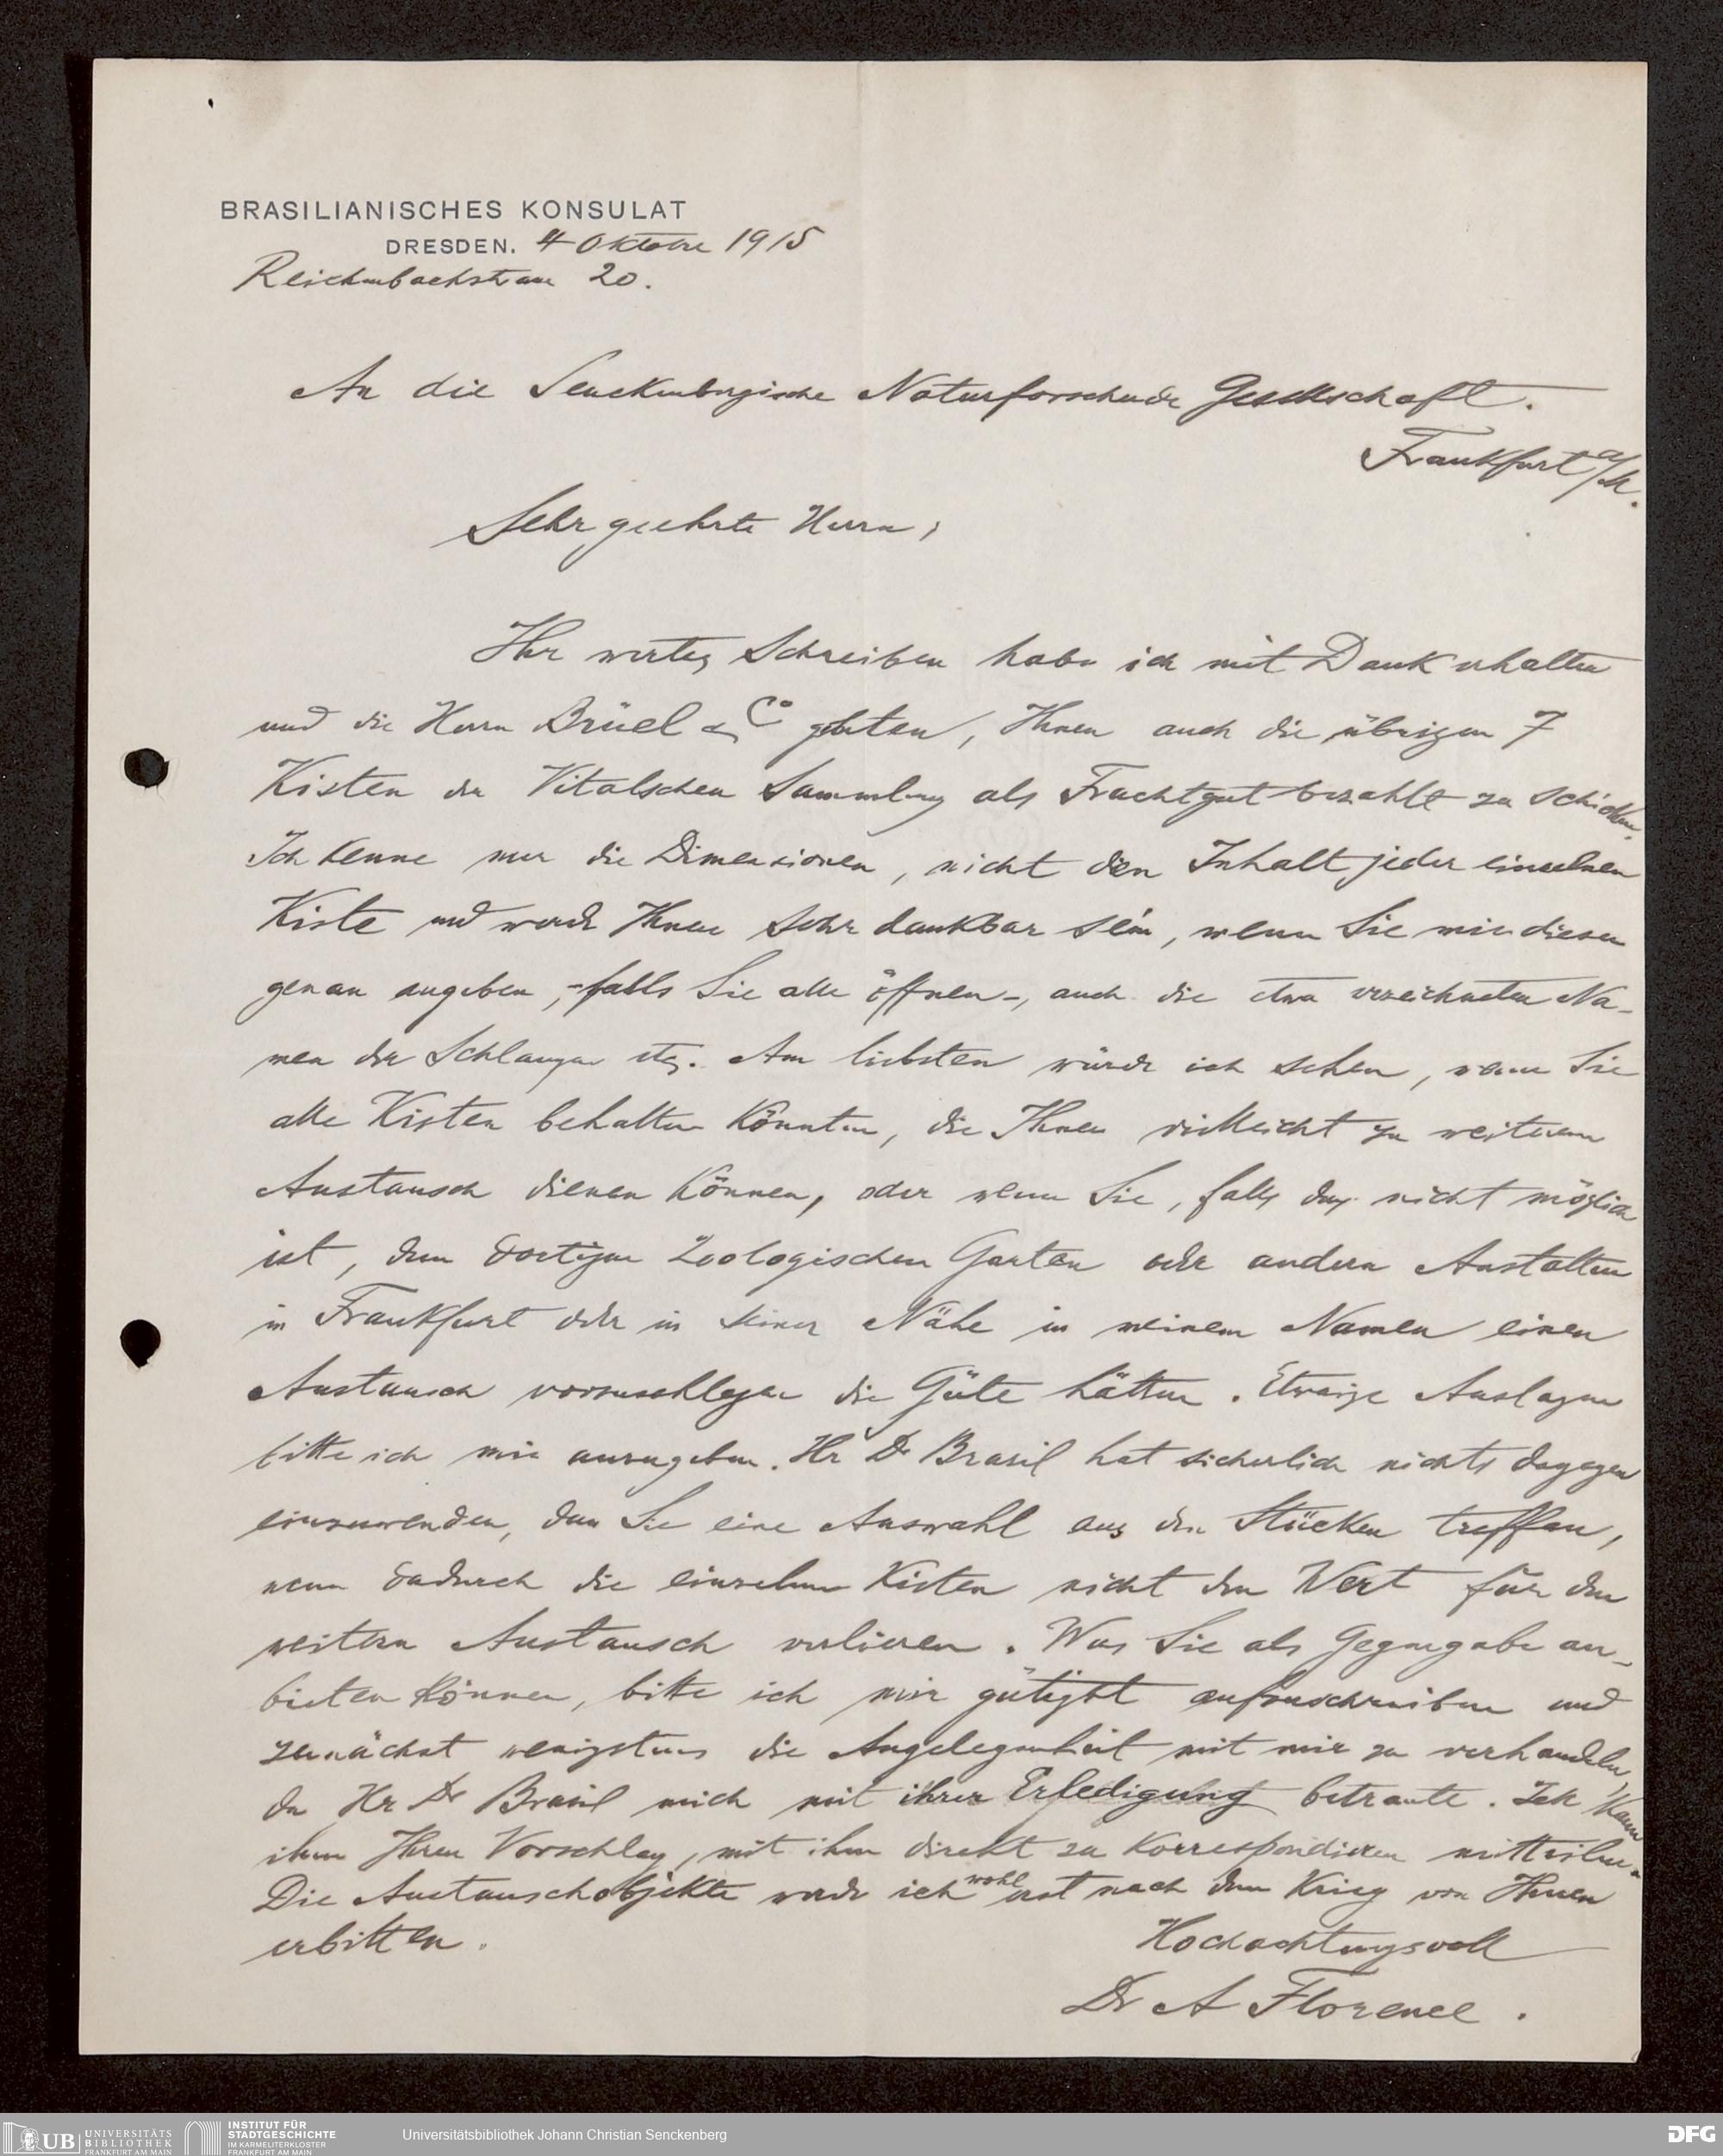 BRASILIANISCHES KONSULAT
DRESDEN. 4 Oktober 1915
Reichenbachstrasse 20.
An die Senckenbergische Naturforschende Gesellschaft.
Frankfurt a/M.
Sehr geehrte Herren,
Ihr wertes Schreiben habe ich mit Dank erhalten
und die Herren Brüel & Co gebeten, Ihnen auch die übrigen 7
Kisten der Vitalschen Sammlung als Frachtgut bezahlt zu schicken.
Ich kenne nur die Dimensionen, nicht den Inhalt jeder einzelnen
Kiste und werde Ihnen sehr dankbar sein, wenn Sie mir diesen
genau angeben, - falls Sie alle öffnen -, auch die etwa verzeichneten Na-
men der Schlangen etc. Am liebsten würde ich sehen, wenn Sie
alle Kisten behalten könnten, die Ihnen vielleicht zu weiterem
Austausch dienen können, oder wenn Sie, falls das nicht möglich
ist, dem dortigen Zoologischen Garten oder andern Anstalten
in Frankfurt oder in seiner Nähe in meinem Namen einen
Austausch vorzuschlagen die Güte hätten. Etwaige Auslagen
bitte ich mir anzugeben. Hr Dr Brasil hat sicherlich nichts dagegen
einzuwenden, dass Sie eine Auswahl aus den Stücken treffen,
wenn dadurch die einzelnen Kisten nicht den Wert für den
weitern Austausch verlieren. Was Sie als Gegengabe an-
bieten können, bitte ich mir gütigst aufzuschreiben und
zunächst wenigstens die Angelegenheit mit mir zu verhandeln,
da Hr Dr Brasil mich mit ihrer Erledigung betraute. Ich kann
ihm Ihren Vorschlag, mit ihm direkt zu korrespondieren mitteilen.
Die Austauschobjekte werde ich wohl erst nach dem Krieg von Ihnen
erbitten.
Hochachtungsvoll
Dr A Florence.
UB UNIVERSITÄTS
BIBLIOTHEK
FRANKFURT AM MAIN
INSTITUT FÜR
STADTGESCHICHTE
IM KARMELITERKLOSTER
FRANKFURT AM MAIN
Universitätsbibliothek Johann Christian Senckenberg
DFG